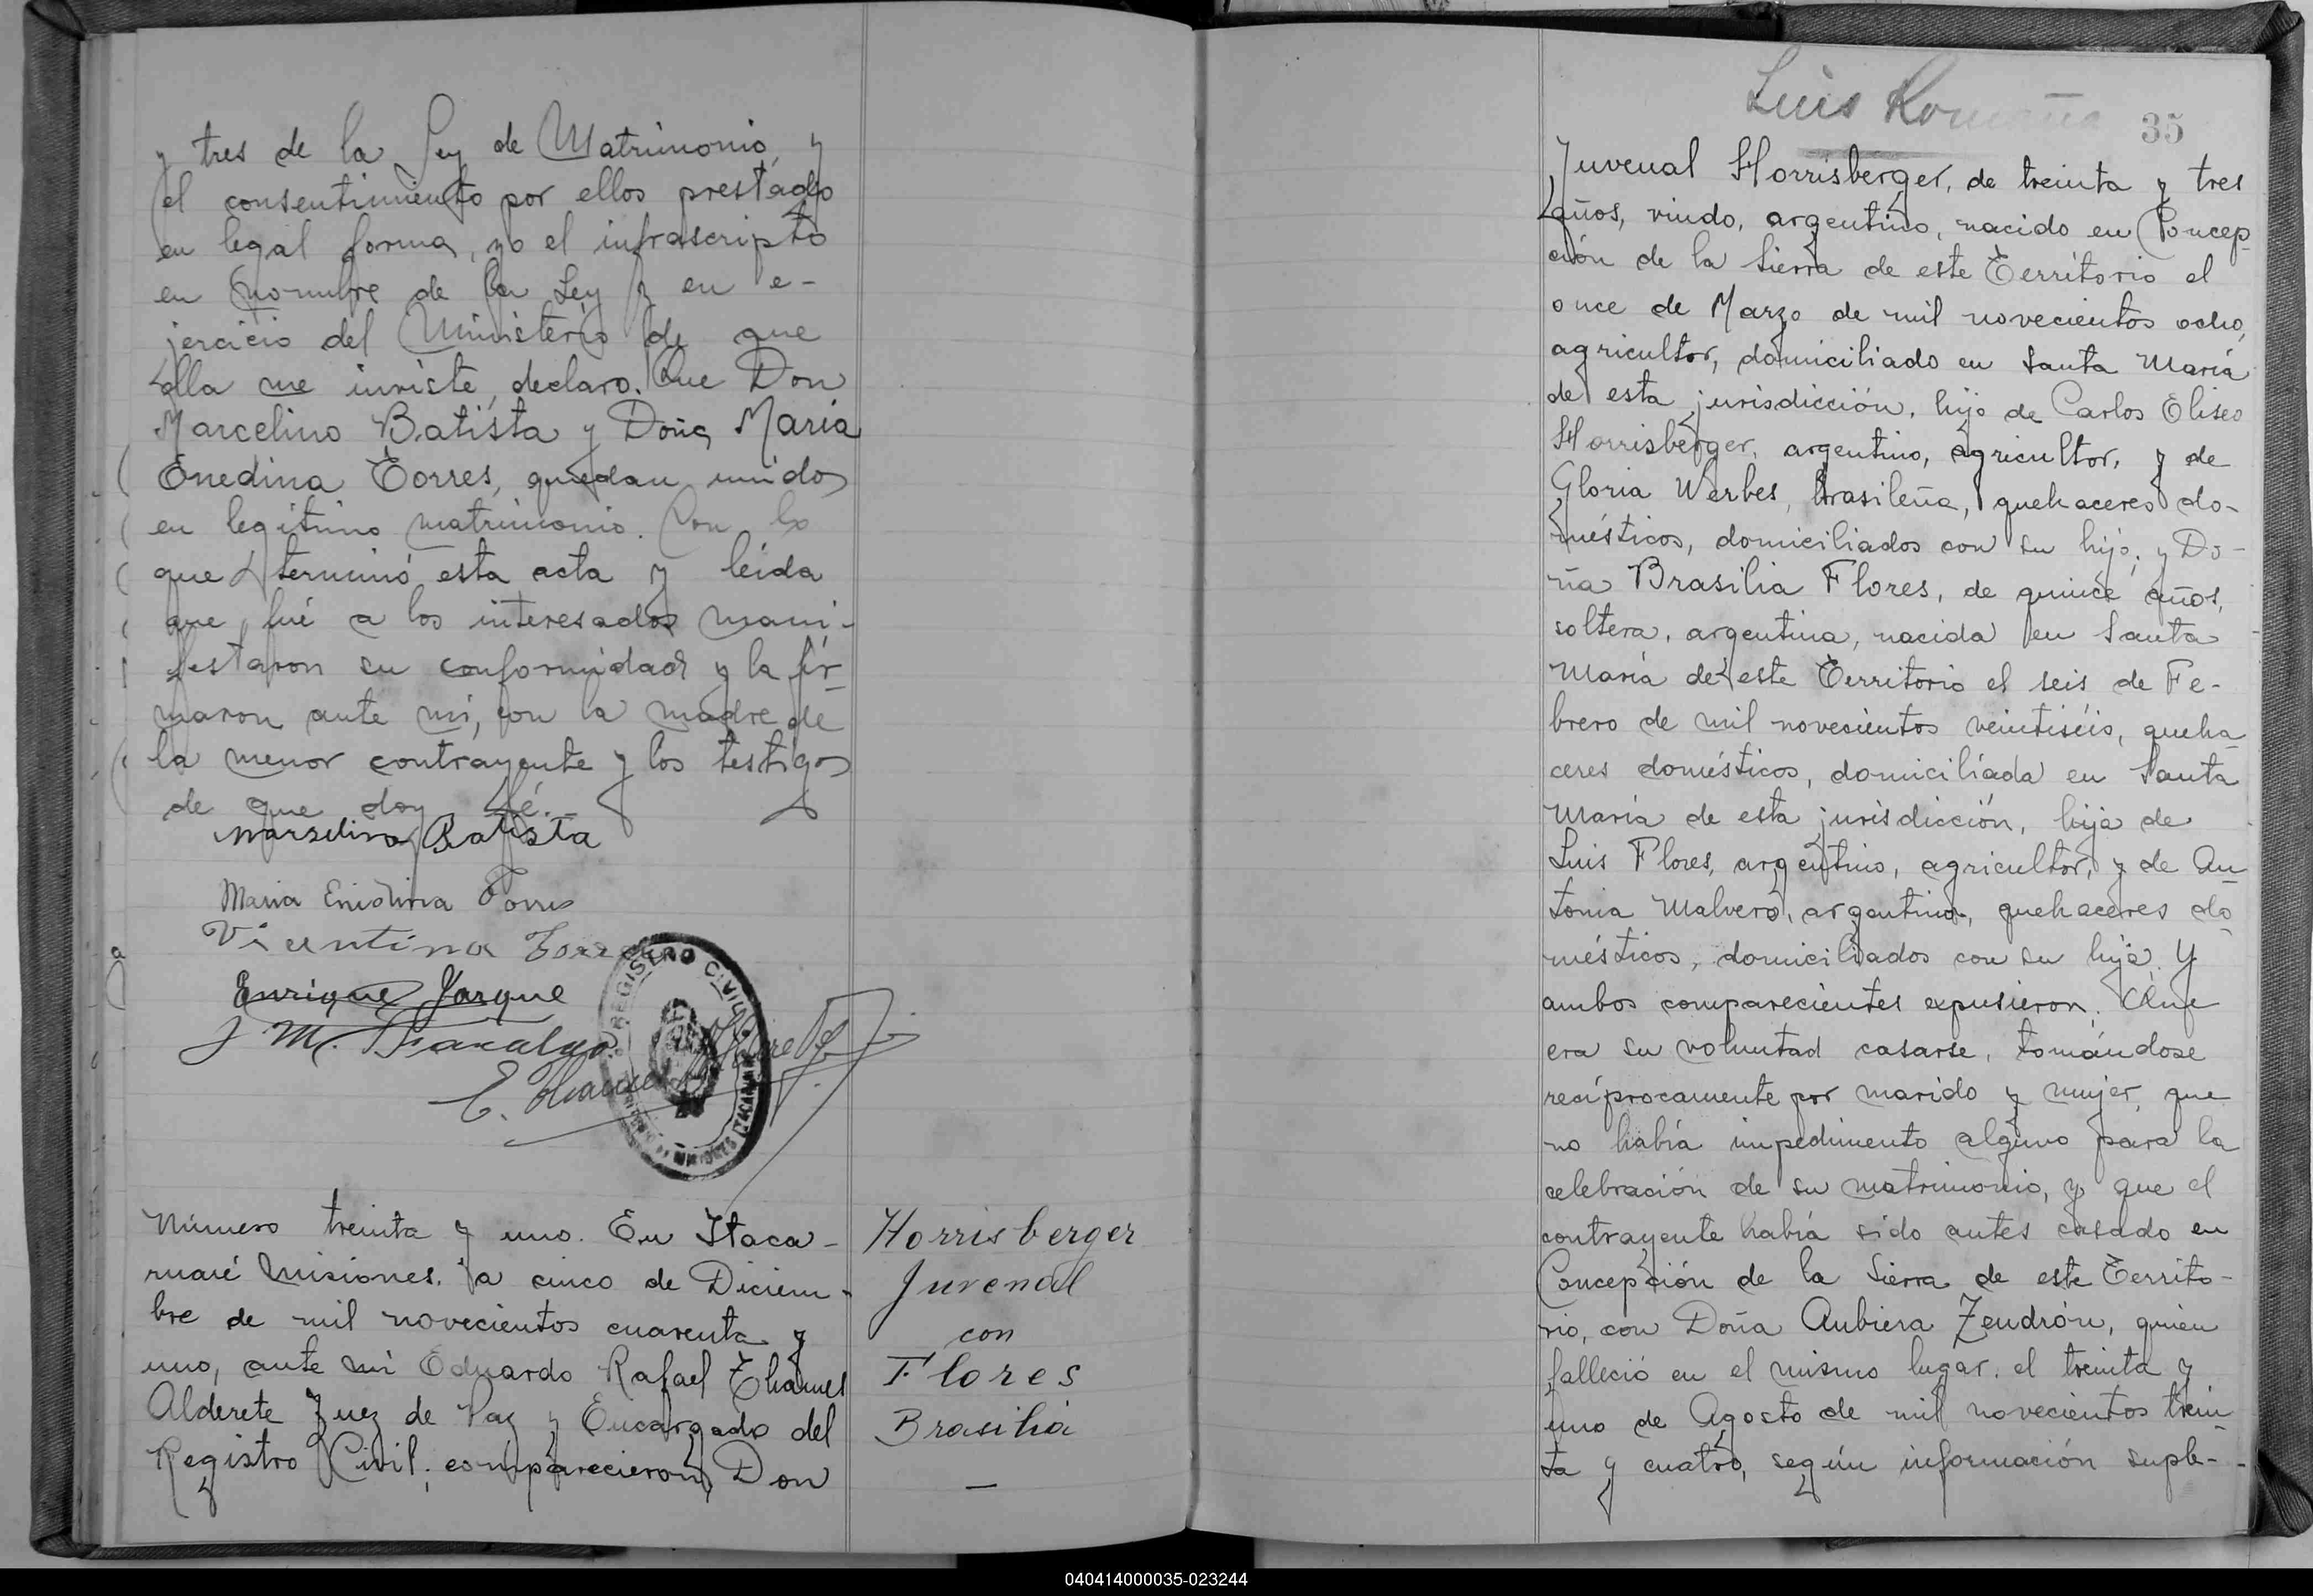 y tres de la Ley de Matrimonio, y
el consentimiento por ellos prestado
en legal forma, yo el infrascripto
en nombre de la Ley y en e-
jercicio del Ministerio de que
ella me inviste, declaro. Que Don
Marcelino Batista y Doña María
Enedina Torres, quedan unidos
en legítimo matrimonio. Con lo
que terminó esta acta y leída
que fué a los interesados mani-
festaron su conformidad y la fir-
maron ante mi, con la madre de
la menor contrayente y los testigos
de que doy fé.-
Marselino Batista
Maria Enidina Torres
Vicentina Torres
Enrique Jarque
J M.
E. Thames Alderete
REGISTRO CIVIL
MISIONES
Número treinta y uno. En Itaca-
ruaré Misiones. a cinco de Diciem-
bre de mil novecientos cuarenta y
uno, ante mi Eduardo Rafael Thames
Alderete Juez de Paz y Encargado del
Registro Civil; comparecieron, Don
Horrisberger
Juvenal
con
Flores
Brasilia
—
Luis Romaña
35
Juvenal Horrisberger, de treinta y tres
años, viudo, argentino, nacido en Concep-
ción de la Sierra de este Territorio el
once de Marzo de mil novecientos ocho,
agricultor, domiciliado en Santa María
de esta jurisdicción, hijo de Carlos Eliseo
Horrisberger, argentino, agricultor, y de
Gloria Werbes, brasileña, quehaceres do-
mésticos, domiciliados con su hijo; y Do-
ña Brasilia Flores, de quince años,
soltera, argentina, nacida en Santa
María de este Territorio el seis de Fe-
brero de mil novecientos veintiséis, queha-
ceres domésticos, domiciliada en Santa
María de esta jurisdicción, hija de
Luis Flores, argentino, agricultor, y de An-
tonia Malvero, argentina, quehaceres do-
mésticos, domiciliados con su hija. Y
ambos comparecientes expusieron: Que
era su voluntad casarse, tomándose
recíprocamente por marido y mujer, que
no había impedimento alguno para la
celebración de su matrimonio, y que el
contrayente había sido antes casado en
Concepción de la Sierra de este Territo-
rio, con Doña Aubiera Zendrón, quien
falleció en el mismo lugar, el treinta y
uno de Agosto de mil novecientos trein-
ta y cuatro, según información suple-
040414000035-023244